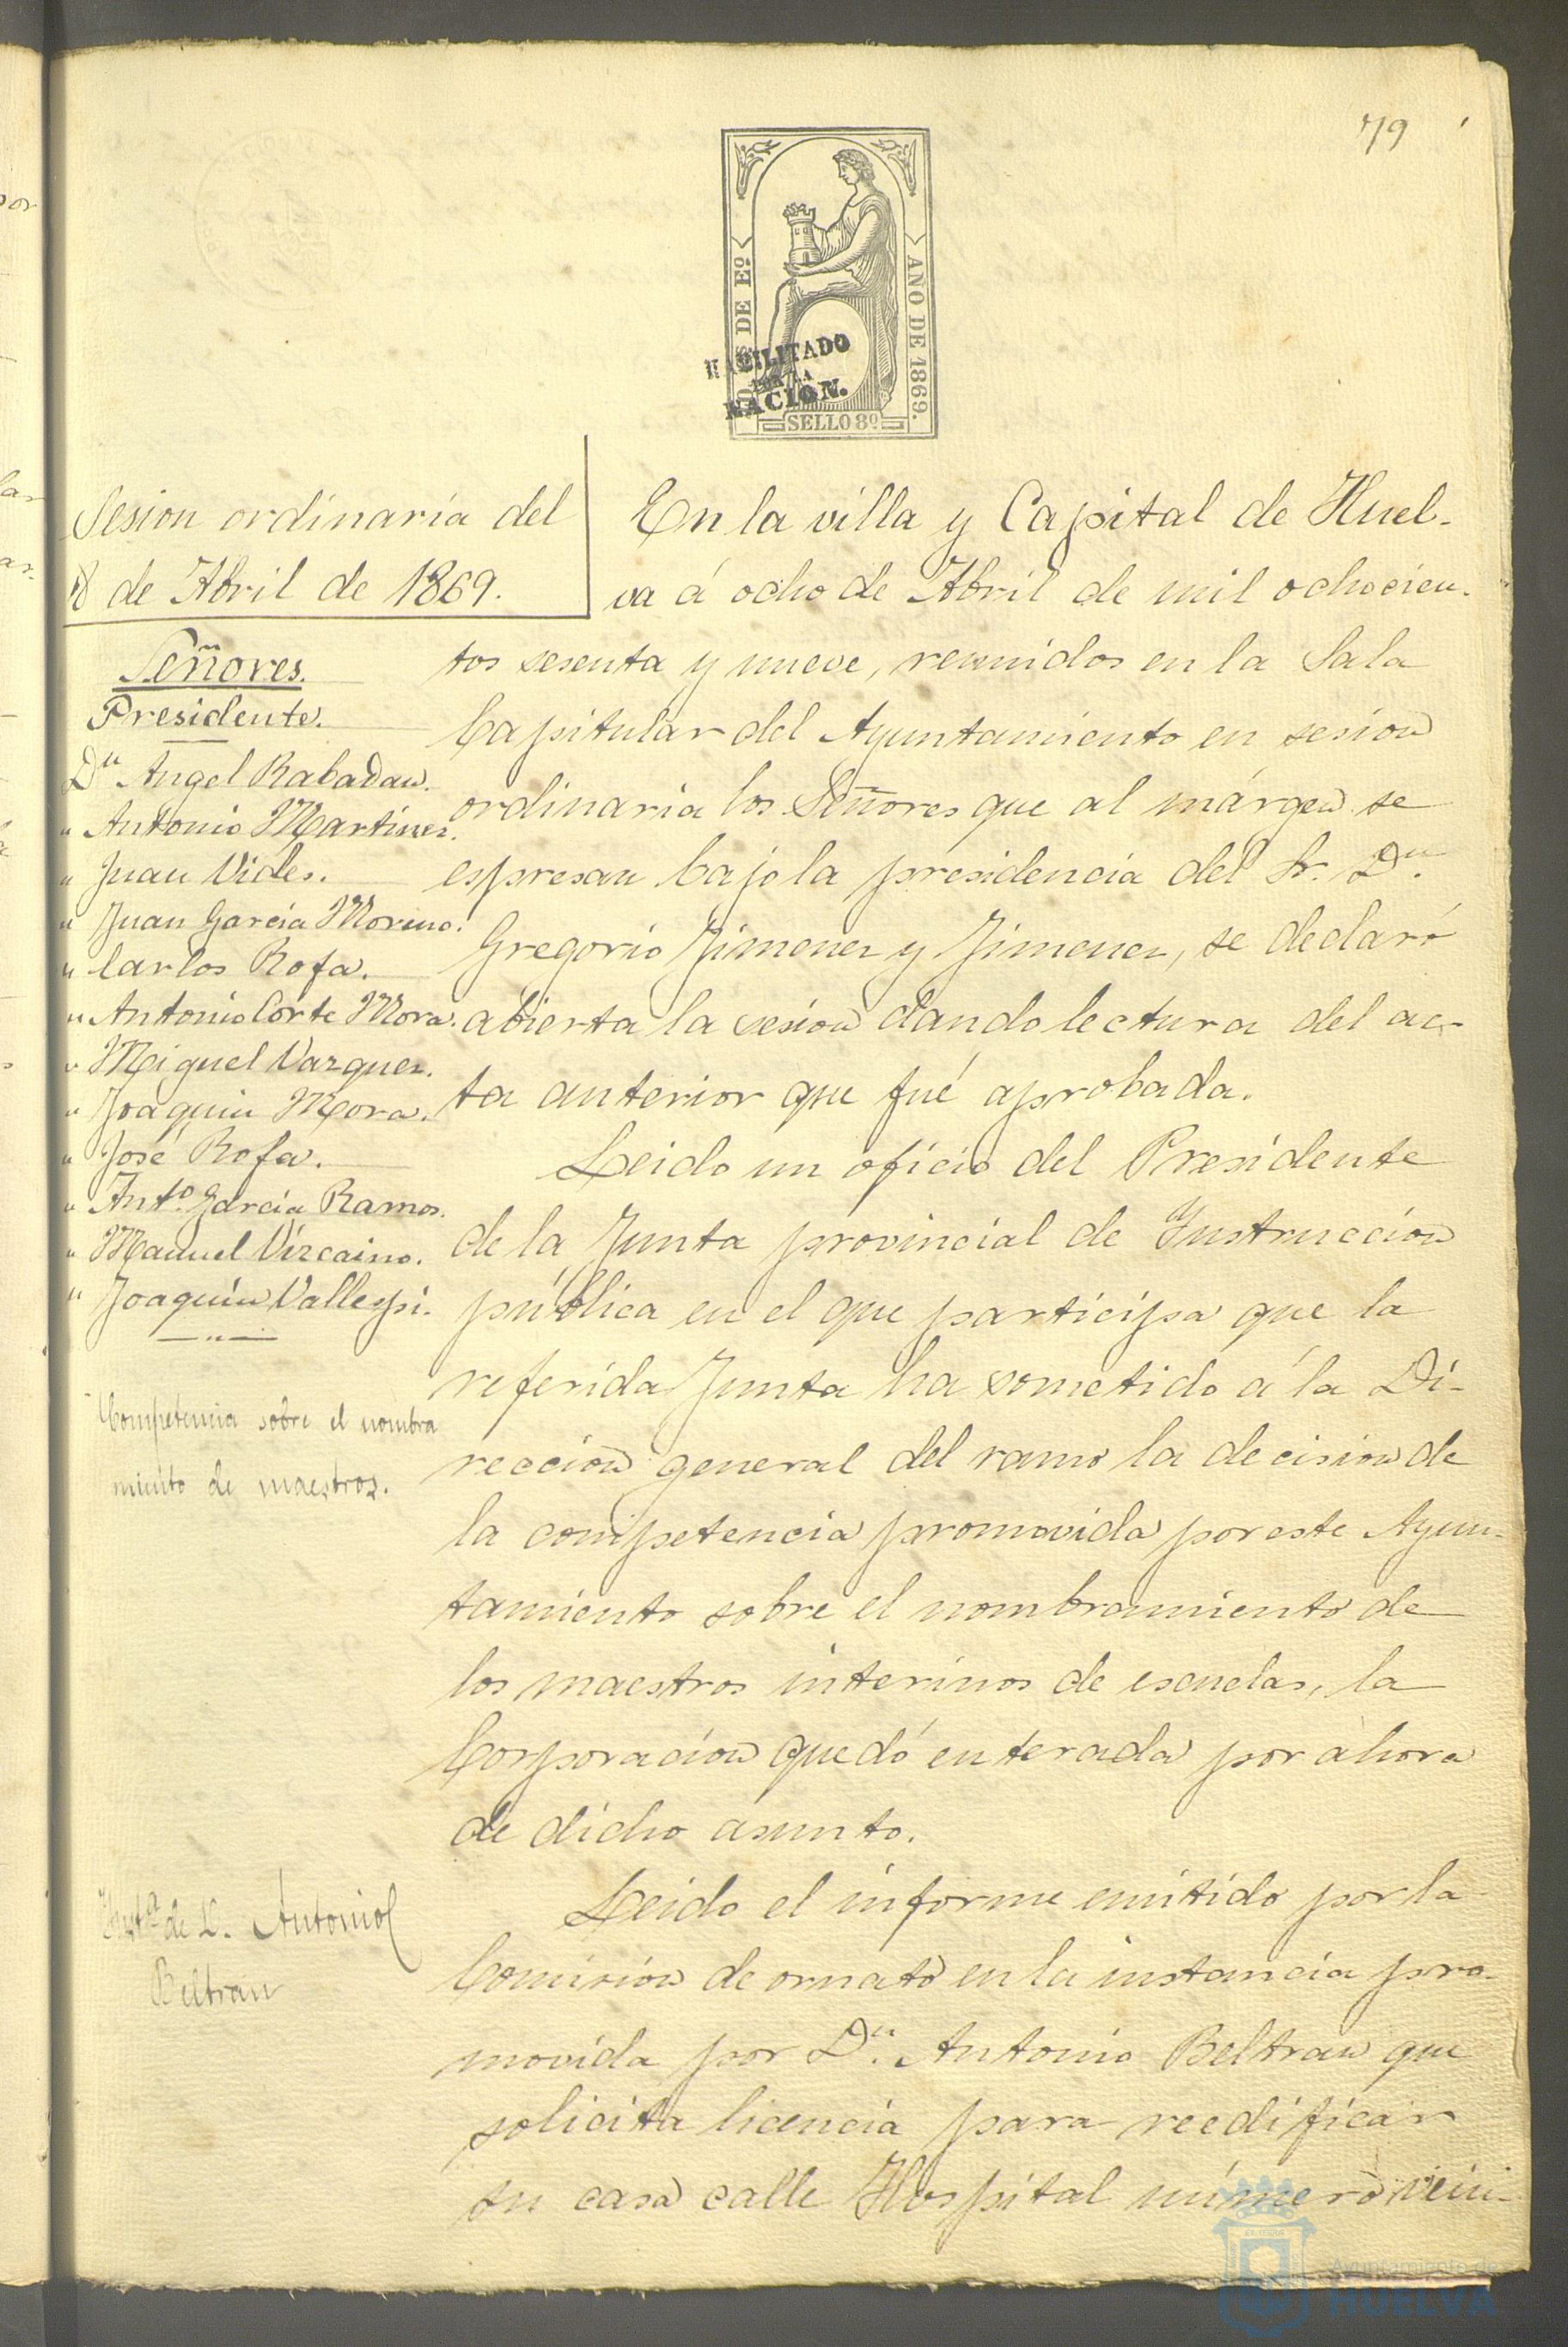 79
PÓS. DE Eº.
AÑO DE 1869.
HABILITADO
POR LA
NACION.
SELLO 8º
Sesion ordinaria del
8 de Abril de 1869.
Señores.
Presidente.
Dn Angel Rabadan.
" Antonio Martinez.
" Juan Vides.
" Juan Garcia Moreno.
" Carlos Rofa.
" Antonio Corte Mora.
" Miguel Vazquez.
" Joaquin Mora.
" José Rofa.
" Anto. Garcia Ramos.
" Manuel Vizcaino.
" Joaquin Vallespi.
Competencia sobre el nombra
miento de maestros.
Insta de D. Antonio
Beltran
En la villa y Capital de Huel-
va á ocho de Abril de mil ochocien-
tos sesenta y nueve, reunidos en la Sala
Capitular del Ayuntamiento en sesion
ordinaria los Señores que al márgen se
espresan bajo la presidencia del Sr. Dn.
Gregorio Jimenez y Jimenez, se declaró
abierta la sesion dando lectura del ac-
ta anterior que fué aprobada.
Leido un oficio del Presidente
de la Junta provincial de Instruccion
pública en el que participa que la
referida Junta ha sometido á la Di-
reccion general del ramo la decision de
la competencia promovida por este Ayun-
tamiento sobre el nombramiento de
los maestros interinos de escuelas, la
Corporacion quedó enterada por ahora
de dicho asunto.
Leido el informe emitido por la
Comision de ornato en la instancia pro-
movida por Dn. Antonio Beltran que
solicita licencia para reedificar
su casa calle Hospital número vein-
Ayuntamiento de
HUELVA